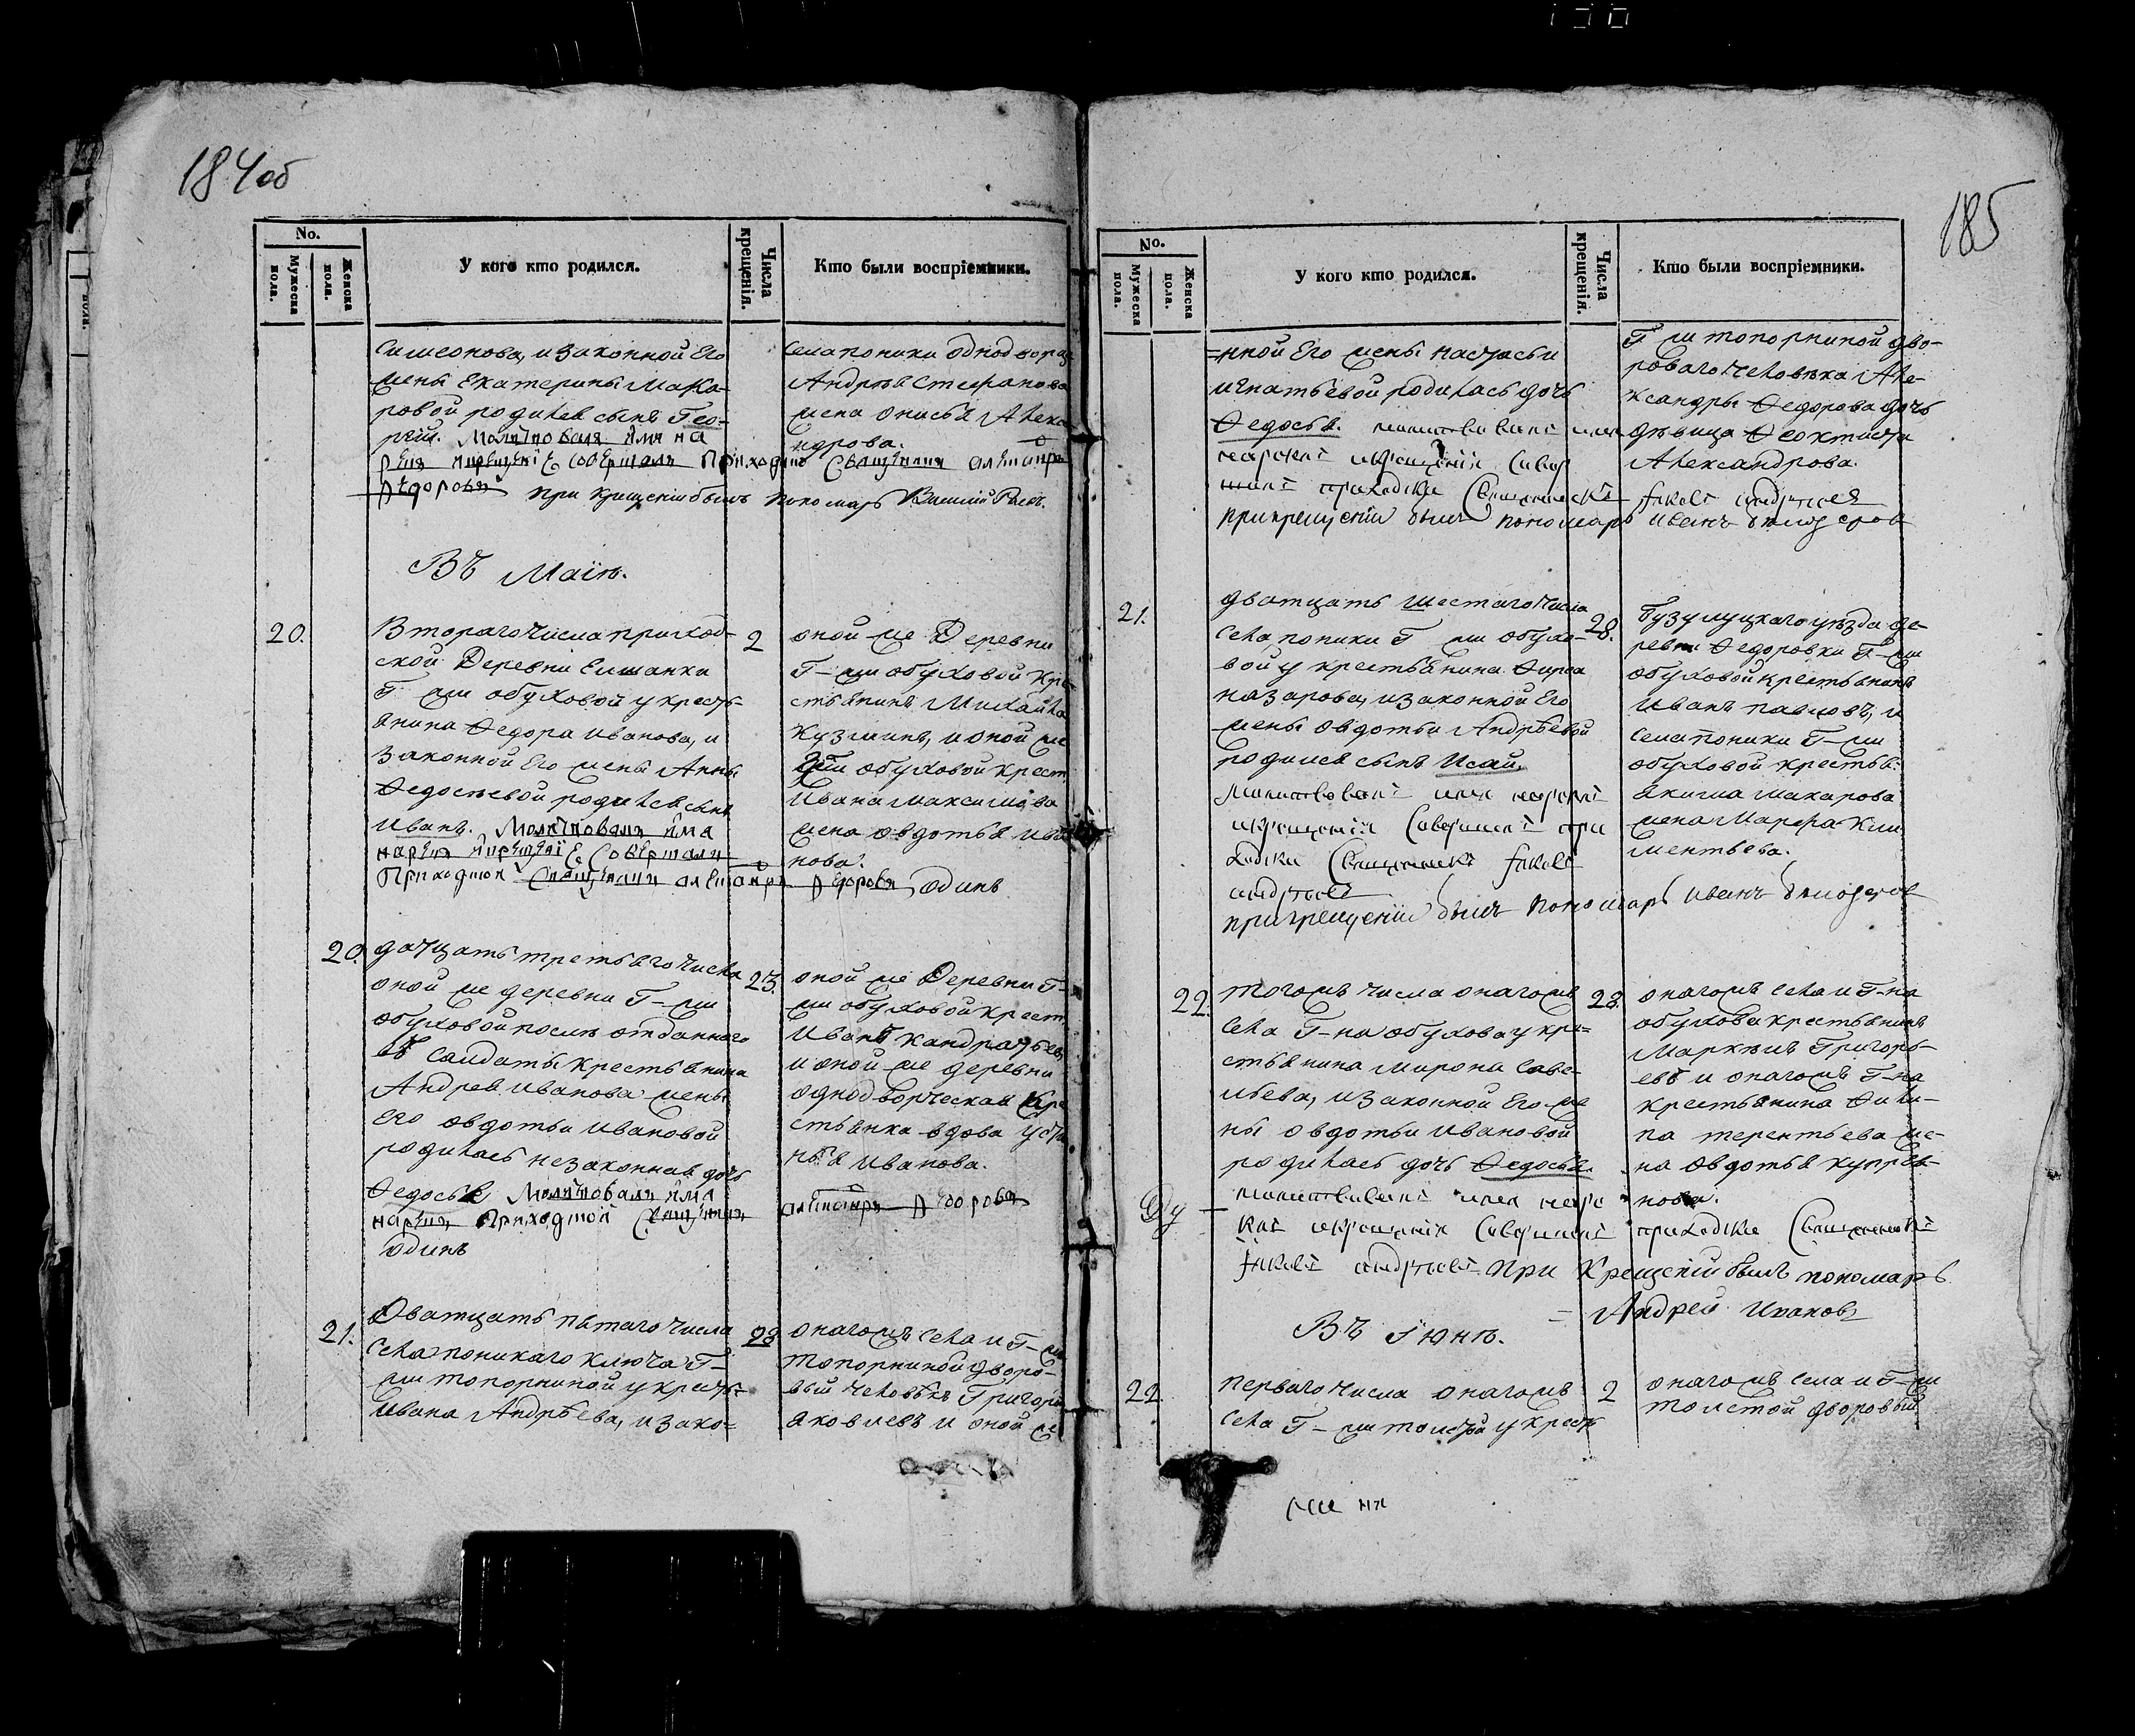 184об
No.
Мужеска пола.
Женска пола.
У кого кто родился.
Числа крещенія.
Кто были воспріемники.
Симеонова, и законной Его
жены Екатерины Мака-
ровой родился сынъ Гео-
ргій. Молитвовалъ имя на
рекъ и крещеніе совершалъ Приходской Священникъ Александръ
Федоровъ При крещеніи былъ пономарь Василій
села поники однодворца
Андрея Стефанова
жена Анисья Алекса
ндрова.
Въ Маіѣ.
20.
Втораго числа приход-
ской Деревни Елшанки
Г-жи Обуховой у кресть-
янина Федора Иванова, и
законной Его жены Анны
Федосѣевой родился сынъ
Иванъ. Молитвовалъ имя
нарекъ и крещеніе совершалъ
Приходской Священникъ Александръ Федоровъ одинъ
2
оной же Деревни
Г-жи обуховой кре-
стьянинъ Михайла
Кузминъ, и оной же
Г-жи обуховой крест
Ивана Максимова
жена Овдотья Ива
нова.
20.
дватцать третьяго числа
оной же деревни Г-жи
Обуховой послѣ отданнаго
въ Салдаты крестьянина
Андрея Иванова жены
его овдотьи Ивановой
родилась незаконная дочь
Федосья Молитвовалъ имя
нарекъ Приходской Священникъ
одинъ
23.
оной же Деревни Г-
жи обуховой крест.
Иванъ Кандратьевъ
и оной же деревни
однодворческая кре
стьянка вдова Усти
нья Иванова.
Александръ Федоровъ
21.
Дватцать пятаго числа
Села поникаго ключа Г-
жи топорниной у крест-
Ивана Андрѣева, и зако-
28
онагожъ села и Г-жи
топорниной дворо-
вый человѣкъ Григорій
Яковлевъ и оной же
185
No.
Мужеска пола.
Женска пола.
У кого кто родился.
Числа крещенія.
Кто были воспріемники.
=нной Его жены Настасьи
игнатьевой родилась дочь
Федосья. молитвовалъ имя
нарекъ и крещеніе совер
шалъ приходской Священникъ Іаковъ Андреевъ
при крещеніи былъ пономарь Иванъ Бѣлозеровъ
Г жи топорниной дво-
роваго человѣка Але-
ксандры Федорова дочь
дѣвица Феоктиста
Александрова.
21.
дватцать шестаго числа
села поники Г жи обухо-
вой у крестьянина Фирса
Назарова, и законной Его
жены Овдотьи Андрѣевой
родился сынъ Исай.
молитвовалъ имя нарекъ
и крещеніе совершалъ при
ходской Священникъ Іаковъ
Андреевъ
при крещеніи былъ пономарь Иванъ Бѣлозеровъ
28.
Бузулуцкаго уѣзда де-
ревни Федоровки Г-жи
обуховой крестьянинъ
Иванъ Павловъ, и
села поники Г-жи
обуховой крестья.
Якима Макарова
жена Марфа Кли
ментьева.
22.
Тогожъ числа онагожъ
села Г-на обухова у кре-
стьянина Мирона Саве-
льева, и законной Его же
ны Овдотьи Ивановой
родилась дочь Федосья.
молитвовалъ имя наре
къ и крещеніе совершалъ приходской Священникъ
Іаковъ Андреевъ. При Крещеніи былъ пономарь
Андрей Ивановъ
28.
онагожъ села и Г-на
обухова крестьянинъ
Маркелъ Григорь-
евъ и онагожъ Г-на
крестьянина Фили-
па терентьева же-
на Овдотья Купрея-
нова.
Въ Іюнѣ.
22.
перваго числа онагожъ
села Г-жи толстой у крест
2
онагожъ села и Г-жи
толстой дворовый